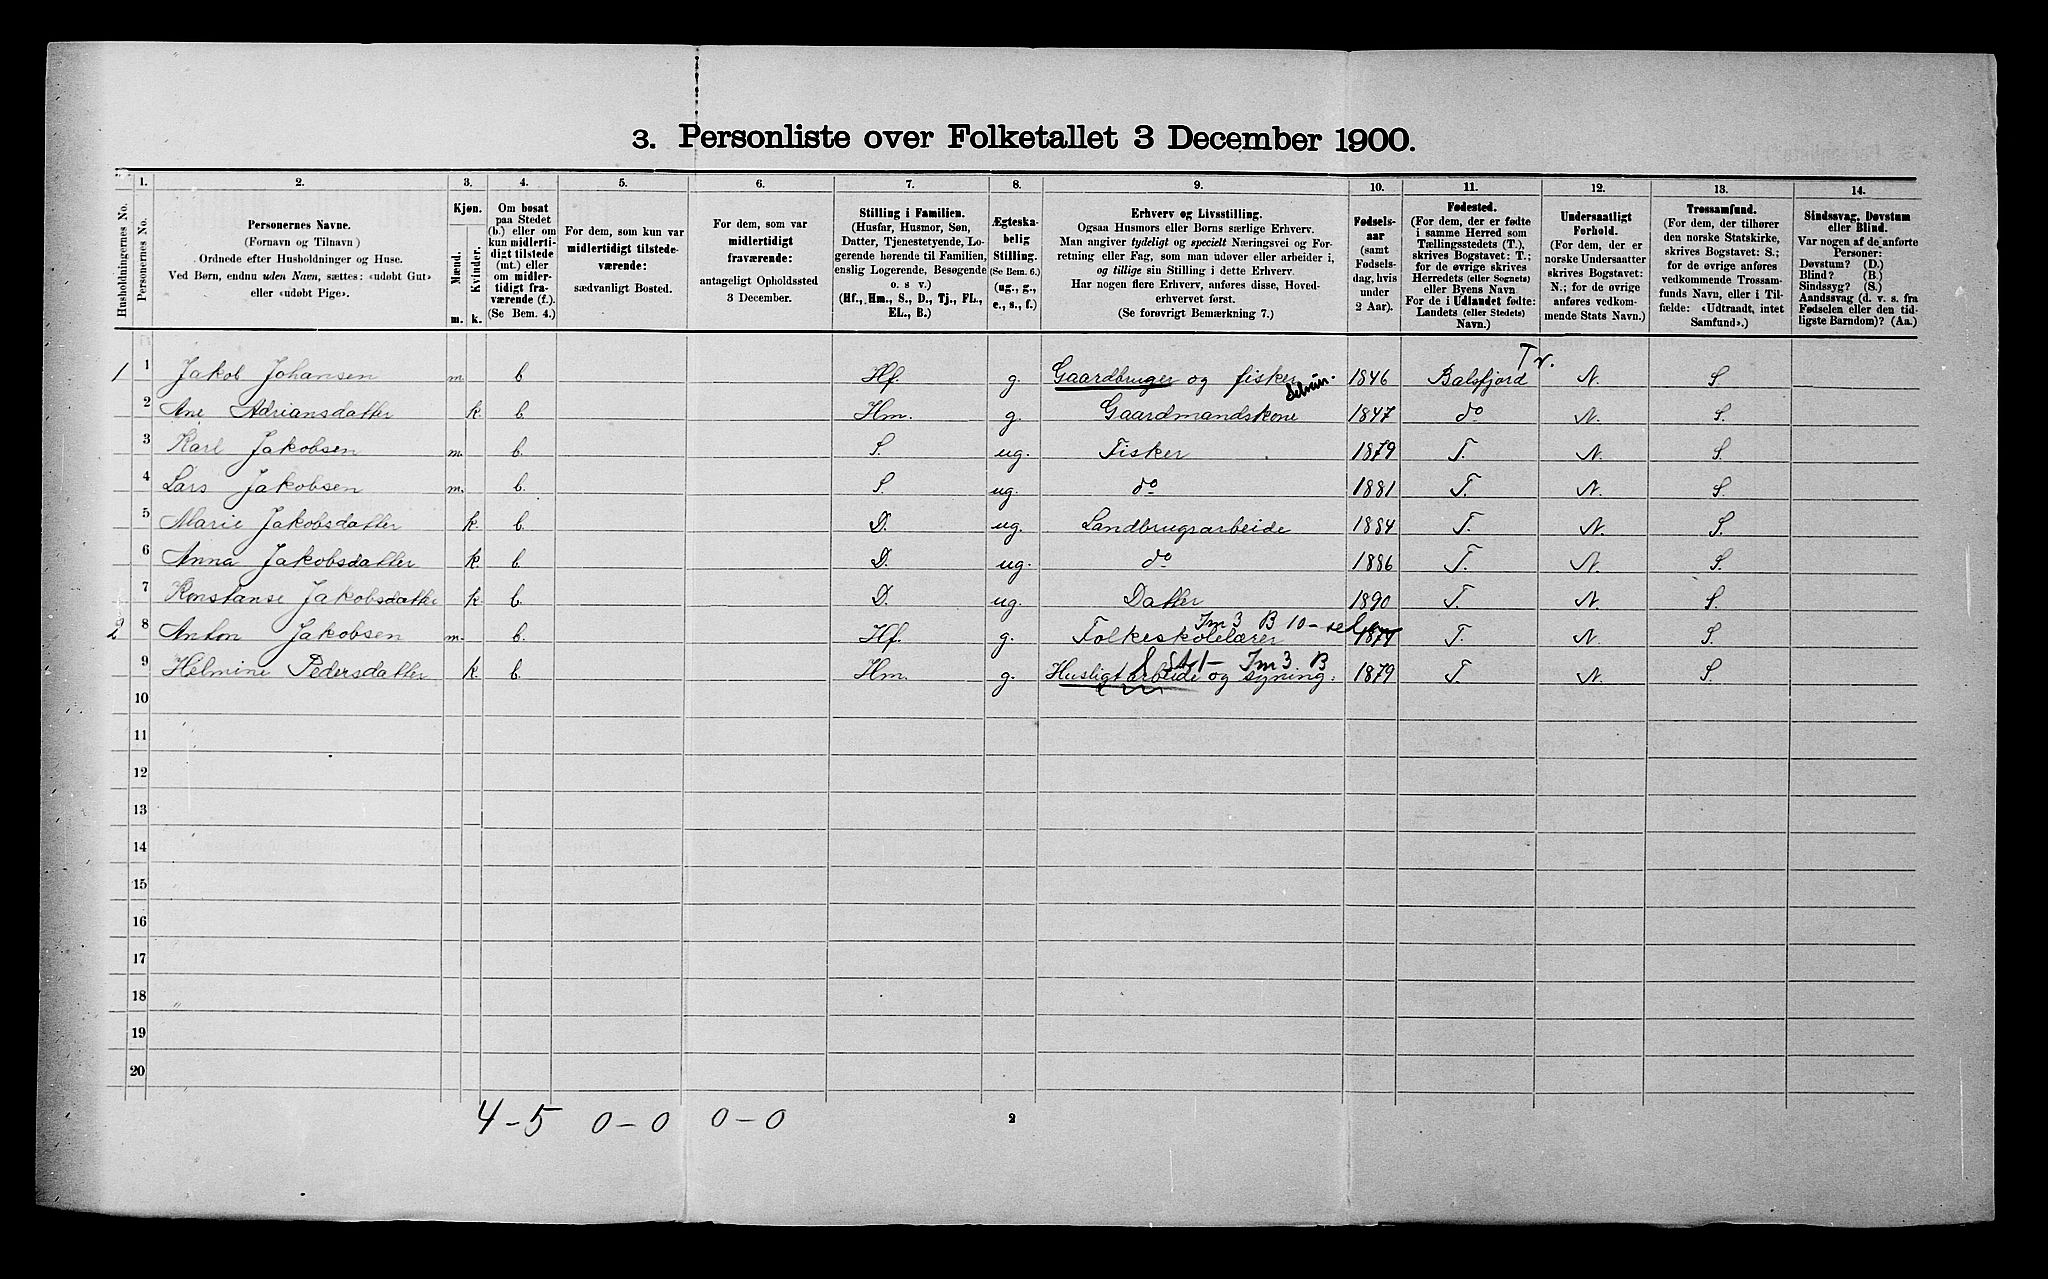 3. Personliste over Folketallet 3 December 1900.
1. 2. 3. 4. 5. 6. 7. 8. 9. 10. 11. 12. 13. 14.
Husholdningernes No.
Personernes No.
Personernes Navne.
(Fornavn og Tilnavn)
Ordnede efter Husholdninger og Huse.
Ved Børn, endnu uden Navn, sættes: «udøbt Gut»
eller «udøbt Pige».
Kjøn.
Mænd.
Kvinder.
m. k.
Om bosat
paa Stedet
(b.) eller om
kun midlerti-
digt tilstede
(mt.) eller
om midler-
tidigt fra-
værende (f.).
(Se Bem. 4.)
For dem, som kun var
midlertidigt tilstede-
værende:
sædvanligt Bosted.
For dem, som var
midlertidigt
fraværende:
antageligt Opholdssted
3 December.
Stilling i Familien.
(Husfar, Husmor, Søn,
Datter, Tjenestetyende, Lo-
gerende hørende til Familien,
enslig Logerende, Besøgende
o. s v.)
(Hf., Hm., S., D., Tj., FL.,
EL., B.)
Ægteska-
belig
Stilling.
(Se Bem. 6.)
(ug., g.,
e., s., f.)
Erhverv og Livsstilling.
Ogsaa Husmors eller Børns særlige Erhverv.
Man angiver tydeligt og specielt Næringsvei og For-
retning eller Fag, som man udøver eller arbeider i,
og tillige sin Stilling i dette Erhverv.
Har nogen flere Erhverv, anføres disse, Hoved-
erhvervet først.
(Se forøvrigt Bemærkning 7.)
Fødsels-
aar
(samt
Fødsels-
dag, hvis
under
2 Aar).
Fødested.
(For dem, der er fødte
i samme Herred som
Tællingsstedets (T.),
skrives Bogstavet: T.;
for de øvrige skrives
Herredets (eller Sognets)
eller Byens Navn
For de i Udlandet fødte:
Landets (eller Stedets)
Navn.)
Undersaatligt
Forhold.
(For dem, der er
norske Undersaatter
skrives Bogstavet:
N.; for de øvrige
anføres vedkom-
mende Stats Navn.)
Trossamfund.
(For dem, der tilhører
den norske Statskirke,
skrives Bogstavet: S.;
for de øvrige anføres
vedkommende Trossam-
funds Navn, eller i Til-
fælde: «Udtraadt, intet
Samfund».)
Sindssvag, Døvstum
eller Blind.
Var nogen af de anførte
Personer:
Døvstum? (D.)
Blind? (B.)
Sindssyg? (S.)
Aandssvag (d. v. s. fra
Fødselen eller den tid-
ligste Barndom)? (Aa.)
1 1 Jakob Johansen m. b. Hf. g. Gaardbruger og fisker Selvei. 1846 Balsfjord Tr. N. S.
2 Ane Adriansdatter k. b. Hm. g. Gaardmandskone 1847 do N. S.
3 Karl Jakobsen m. b. S. ug. Fisker 1879 T. N. S.
4 Lars Jakobsen m. b. S. ug. do 1881 T. N. S.
5 Marie Jakobsdatter k. b. D. ug. Landbrugsarbeide 1884 T. N. S.
6 Anna Jakobsdatter k. b. D. ug. do 1886 T. N. S.
7 Konstanse Jakobsdatter k. b. D. ug. Datter 1890 T. N. S.
2 8 Anton Jakobsen m. b. Hf. g. Folkeskolelærer Im 3 B 10 1874 T. N. S.
9 Helmine Pedersdatter k. b. Hm. g. Husligt arbeide og syning. Im 3. B 1879 T. N. S.
10
11
12
13
14
15
16
17
18
19
20
4-5 0-0 0-0 2